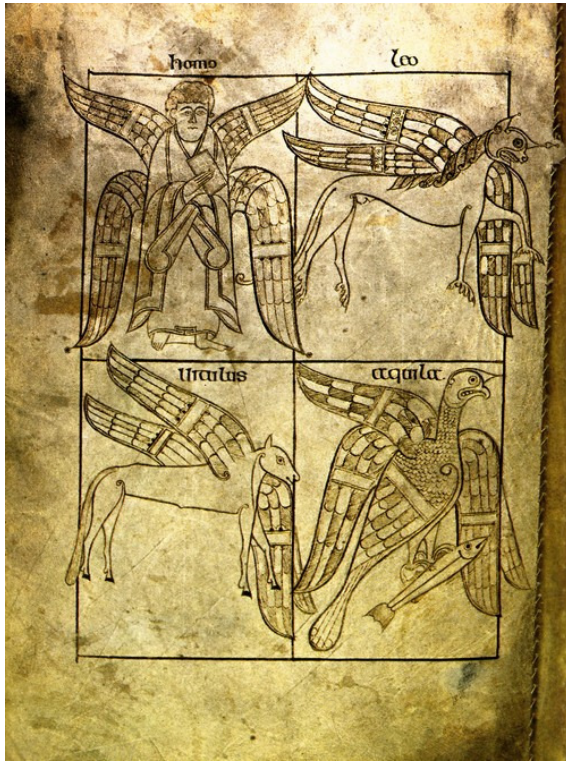 homo
leo
uitulus
aquila.